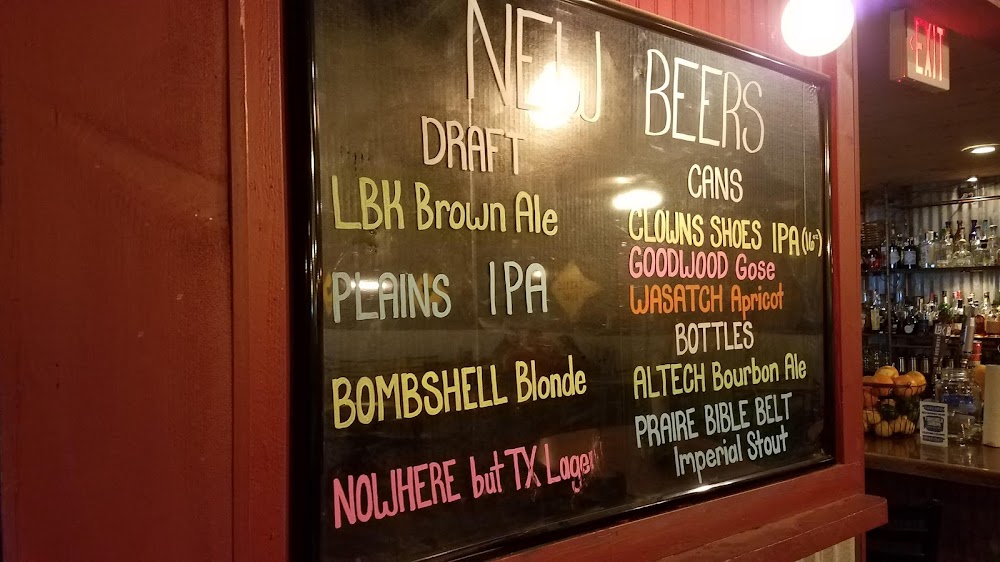 NEW BEERS
DRAFT
LBK Brown Ale
PLAINS IPA
BOMBSHELL Blonde
NOWHERE but TX Lager
CANS
CLOWNS SHOES IPA (16oz)
GOODWOOD Gose
WASATCH Apricot
BOTTLES
ALTECH Bourbon Ale
PRAIRE BIBLE BELT
Imperial Stout
EXIT